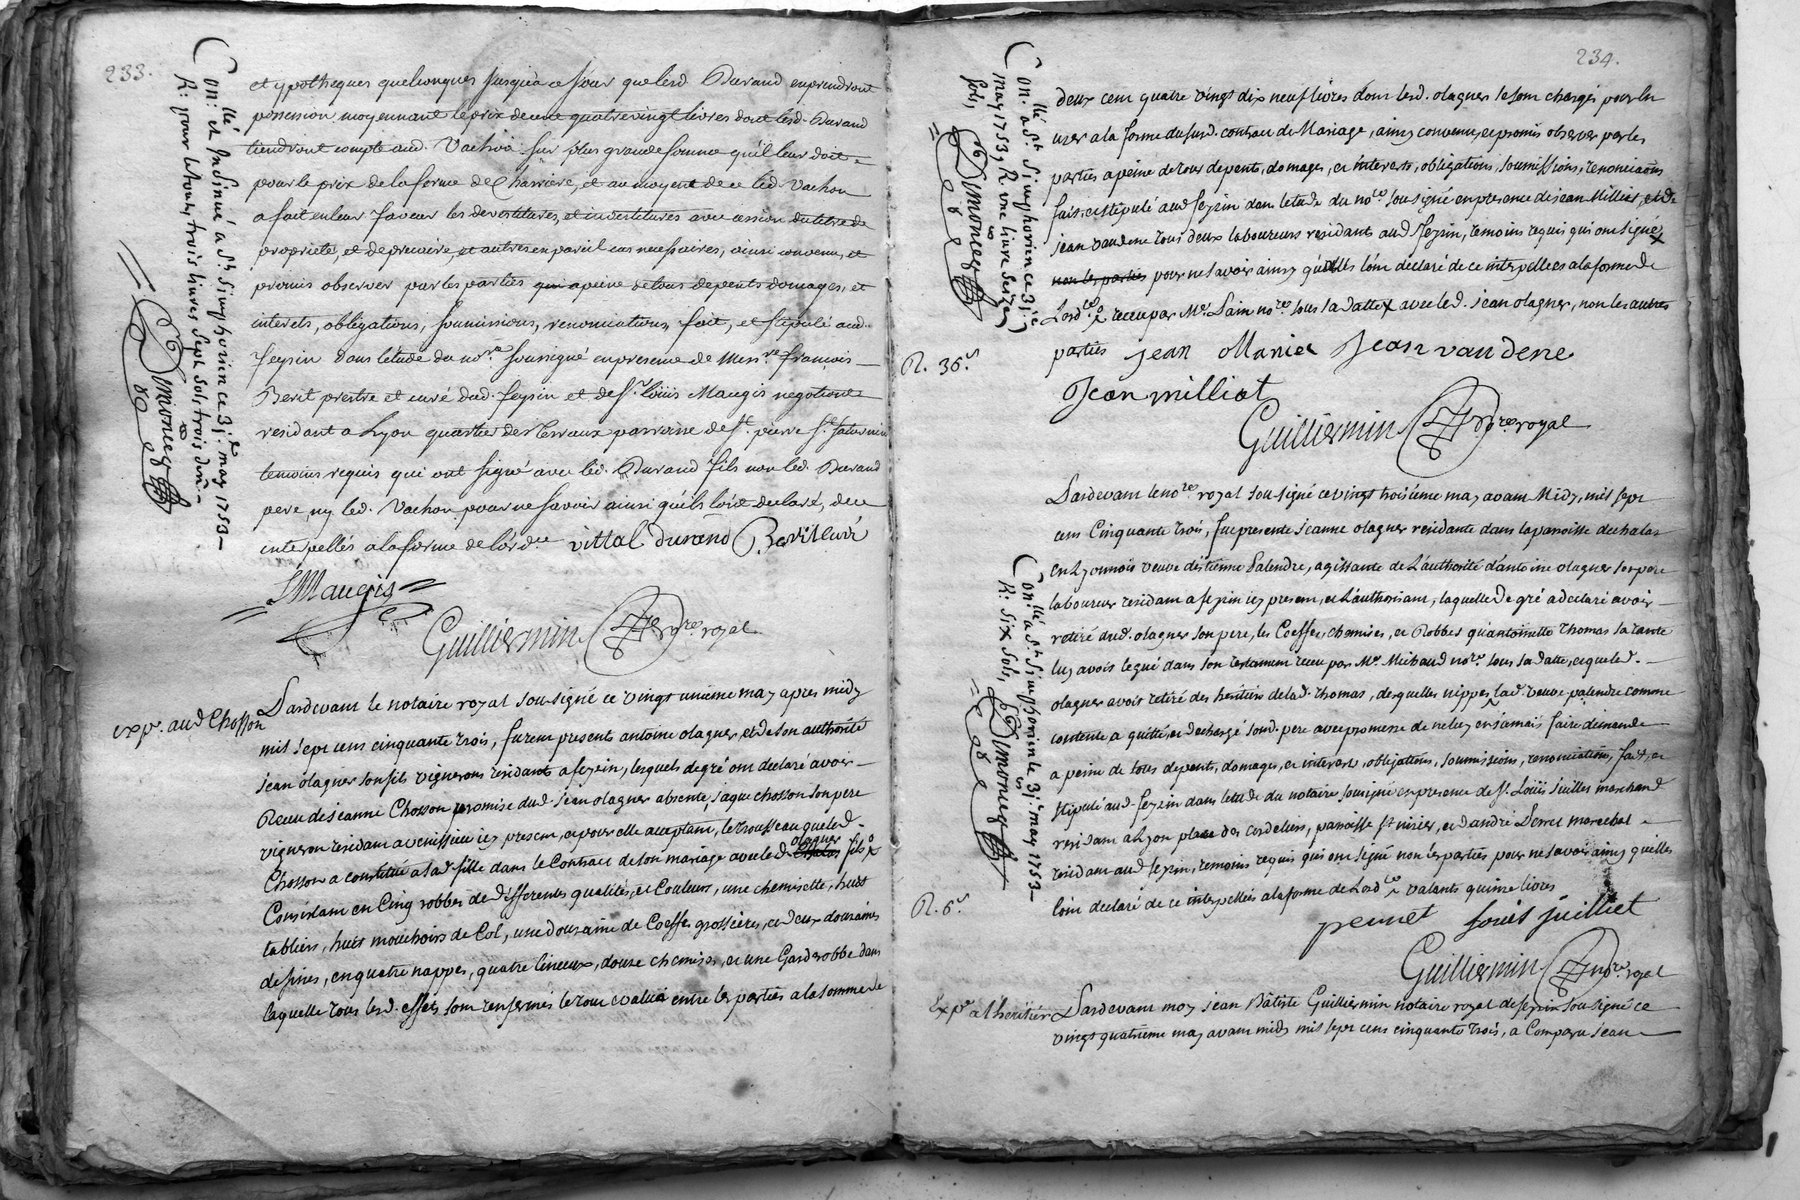 233.
Con.llé et Insinué a St. Simphorien ce 31.e may 1753
R: pour le tout, trois livres sept sols, trois den.
Simonet
et ypotheques quelconques jusqu'a ce jour que lesd Durand en prendront
possession, moyennant le prix de cent quatre vingt livres dont lesd. Durand
tiendront compte aud. Vachon sur plus grande somme qu'il leur doit
pour le prix de la ferme de Charriere, et au moyent de ce led. Vachon
a fait en leur faveur les devestitures, et investitures avec cession du titre de
proprieté, et de precaire, et autres en pareil cas necessaires, ainsi convenu, et
promis observer par les parties a peine de tous depents domages, et
interets, obligations, soumissions, renonciations, fait, et stipulé aud.
feysin dans l'etude du no.re soussigné en presence de Mess.re françois
Berit prestre et curé dud. feysin et de Sr. Loüis Maugis negotiant
residant a Lyon quartier des Terraux parroisse de St. pierre St. saturnin
temoins requis qui ont signé avec led. Durand fils non led. Durand
pere, ny led. Vachon pour ne savoir ainsi qu'ils l'ont declaré, de ce
interpellés a la forme de l'ord.ce vittal durand Berit curé
L Maugis
Guilliermin no.re royal
exp.e aud Chosson
Pardevant le notaire royal sousigné ce vingt unieme may apres midy
mil sept cens cinquante trois, furent presents antoine olagner, et de son authorité
jean olagner son fils vignerons residants a feyzin, lesquels de gré ont declaré avoir
Receu de jeanne Chosson promise dud. jean olagner absente, jaque chosson son pere
vigneron residant a venissieu icy present, et pour elle acceptant, le trousseau que led.
Chosson a constitué a sad. fille dans le Contract de son mariage avec led. olagner fils
Consistant en Cinq robbes de differentes qualités, et Couleurs, une chemisette, huit
tabliers, huit mouchoirs de Col, une douzaine de Coeffes grossieres, et deux douzaines
de fines, en quatre nappes, quatre linceux, douze chemises, et une Garderobbe dans
laquelle tous lesd. effets sont renfermés le tout evalué entre les parties a la somme de
234.
Con.llé a St. Simphorien ce 31.e
may 1753, R une livre seize
sols,
Simonet
deux cent quatre vingt dix neuf livres dont lesd. olagner se sont chargés pour en
user a la forme du susd. contract de Mariage, ainsy convenu, et promis observer par les
parties a peine de tous depents, domages, et interets, obligations, soumissions, renonciations
fait, et stipulé aud feysin dans l'etude du no.re sousigné en presence de jean Milliat, et de
jean vaudene tous deux laboureurs residants aud feyzin, temoins requis qui ont signé
non les parties pour ne savoir ainsy qu'elles l'ont declaré de ce interpellées a la forme de
Lord.ce receu par Me. Pain no.re sous sa datte avec led. jean olagner, non les autres
parties jean Olanier Jean vaudene
R. 36.s
Jean milliat
Guilliermin no.re royal
Con.llé a St. Simphorien le 31.e may 1753
R: six sols,
Simonet
Pardevant le no.re royal sousigné ce vingt troisieme may avant Midy, mil sept
cens Cinquante trois, fut presente jeanne olagner residante dans la paroisse de chalas
en Lyonnois veuve d'estienne Palendre, agissante de l'authorité d'antoine olagner son pere
laboureur residant a feyzin icy present, et l'authorisant, laquelle De gré a declaré avoir
retiré dud. olagner son pere, les Coeffes, chemises, et Robbes qu'antoinette Thomas sa tante
luy avoit legué dans son testament receu par Me. Michaud no.re sous sa datte, et que led.
olagner avoit retiré des heritiers de lad. Thomas, desquelles nippes lad. veuve palendre comme
contente a quitté, et dechargé sond. pere avec promesse de ne luy en jamais faire demande
a peine de tous depents, domages, et interets, obligations, soumissions, renonciations, fait, et
stipulé aud. feyzin dans l'etude du notaire sousigné en presence de Sr. Loüis juilliet marchand
residant a Lyon place des cordeliers, paroisse St nizier, et d'andré Pernet marechal
residant aud feyzin, temoins requis qui ont signé non les parties pour ne savoir ainsy quelles
l'ont declaré de ce interpellées a la forme de Lord.ce valants quinze livres
R. 6.s
pernet Louis juilliet
Guilliermin no.re royal
Exp.e a lheritier
Pardevant moy jean Bâtiste Guilliermin notaire royal de feyzin sousigné ce
vingt quatrieme may avant midy mil sept cens cinquante trois, a Comparu jean